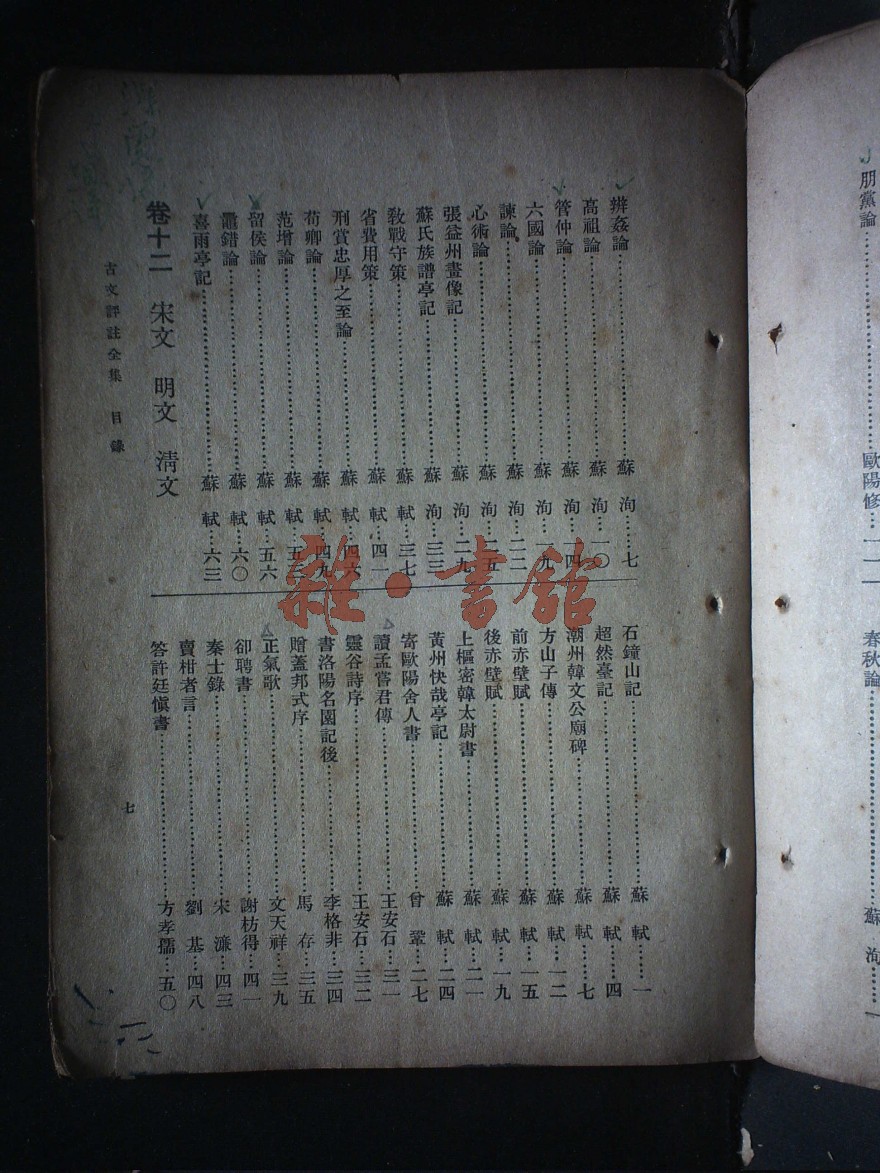 朋黨論……歐陽修…一一
春秋論……蘇洵……一
辨姦論……蘇洵……七
高祖論……蘇洵…一〇
管仲論……蘇洵…一四
六國論……蘇洵…一九
諫論……蘇洵…二二
心術論……蘇洵…二五
張益州畫像記……蘇洵…二九
蘇氏族譜亭記……蘇洵…三三
敎戰守策……蘇軾…三七
省費用策……蘇軾…四一
刑賞忠厚之至論……蘇軾…四六
荀卿論……蘇軾…四九
范增論……蘇軾…五三
留侯論……蘇軾…五六
鼂錯論……蘇軾…六〇
喜雨亭記……蘇軾…六三
卷十二 宋文 明文 清文
石鐘山記……蘇軾……一
超然臺記……蘇軾……四
潮州韓文公廟碑……蘇軾……七
方山子傳……蘇軾…一二
前赤壁賦……蘇軾…一五
後赤壁賦……蘇軾…一九
上樞密韓太尉書……蘇軾…二一
黃州快哉亭記……蘇軾…二四
寄歐陽舍人書……曾鞏…二七
讀孟嘗君傳……王安石…三一
靈谷詩序……王安石…三二
書洛陽名園記後……李格非…三四
贈蓋邦式序……馬存…三五
正氣歌……文天祥…三九
卻聘書……謝枋得…四一
秦士錄……宋濂…四三
賣柑者言……劉基…四八
答許廷愼書……方孝孺…五〇
古文評註全集 目錄
七
雜·書館